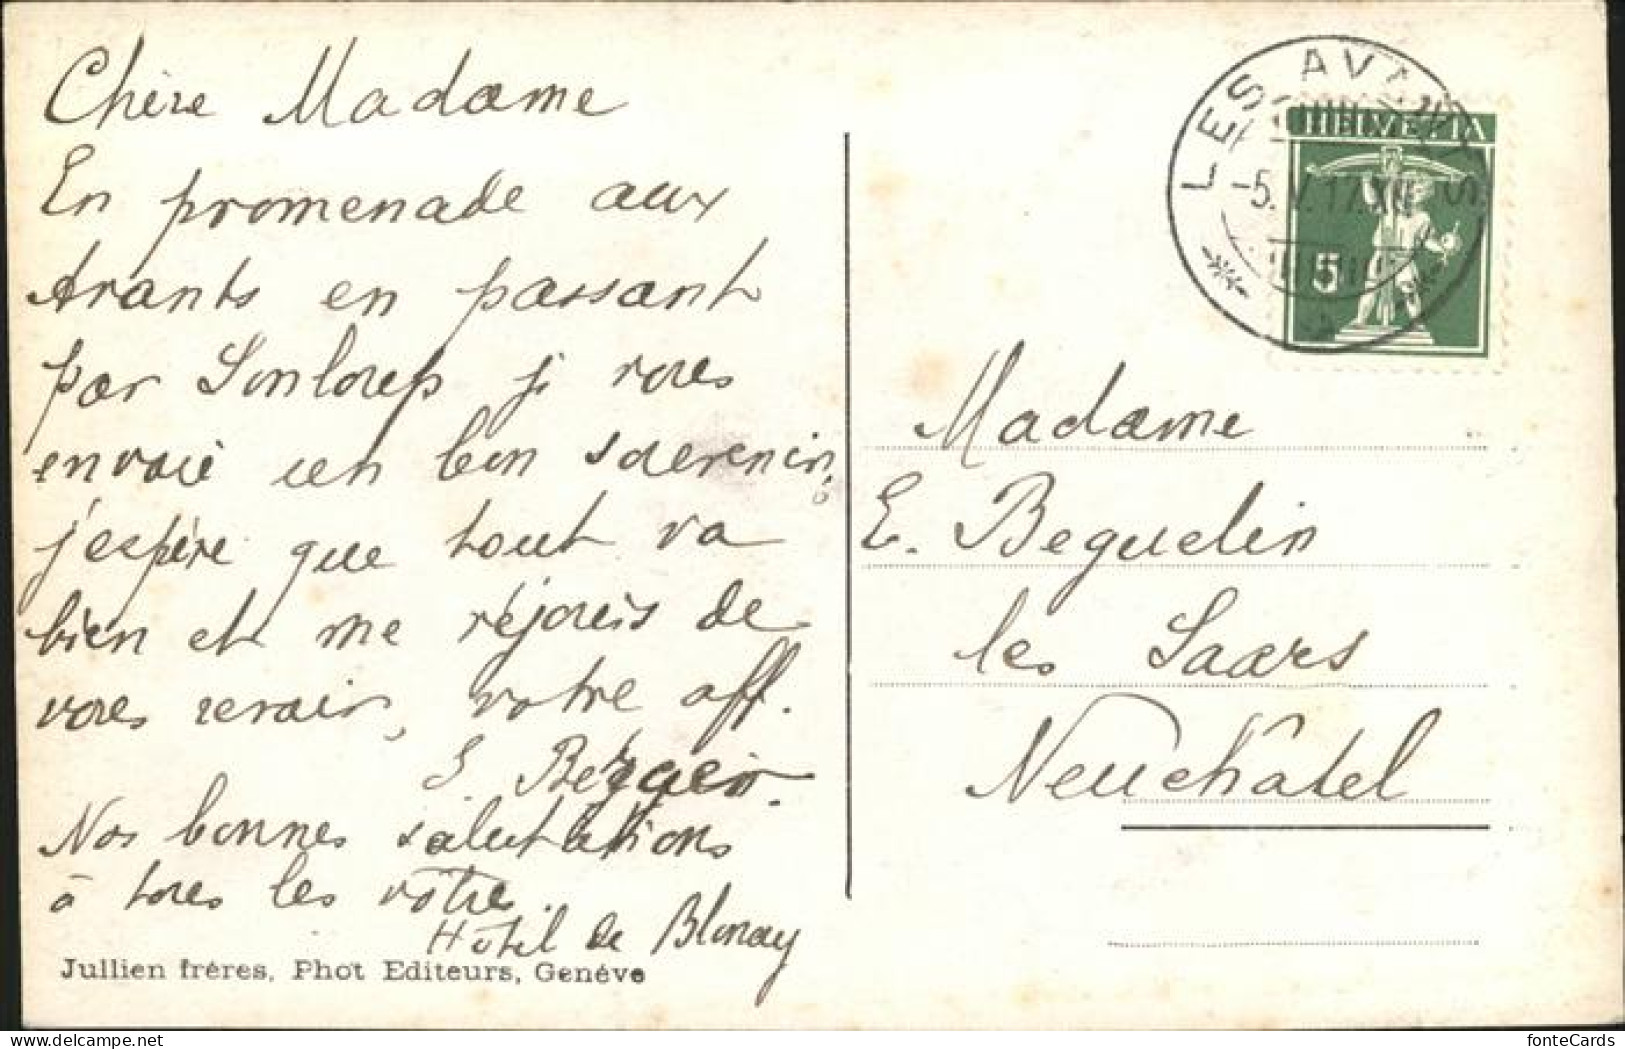 Chère Madame
En promenade aux
Avants en passant
par Sonloup je vous
envoie un bon souvenir,
j'espère que tout va
bien et me réjouis de
vous revoir, votre aff.
Nos bonnes salutations
à tous les vôtres.
Hôtel de Blonay
Jullien frères, Phot Editeurs, Genéve
LES AVANTS
-5.V.17.XII
HELVETIA
5
Madame
E. Beguelin
les Saars
Neuchâtel
fonteCards